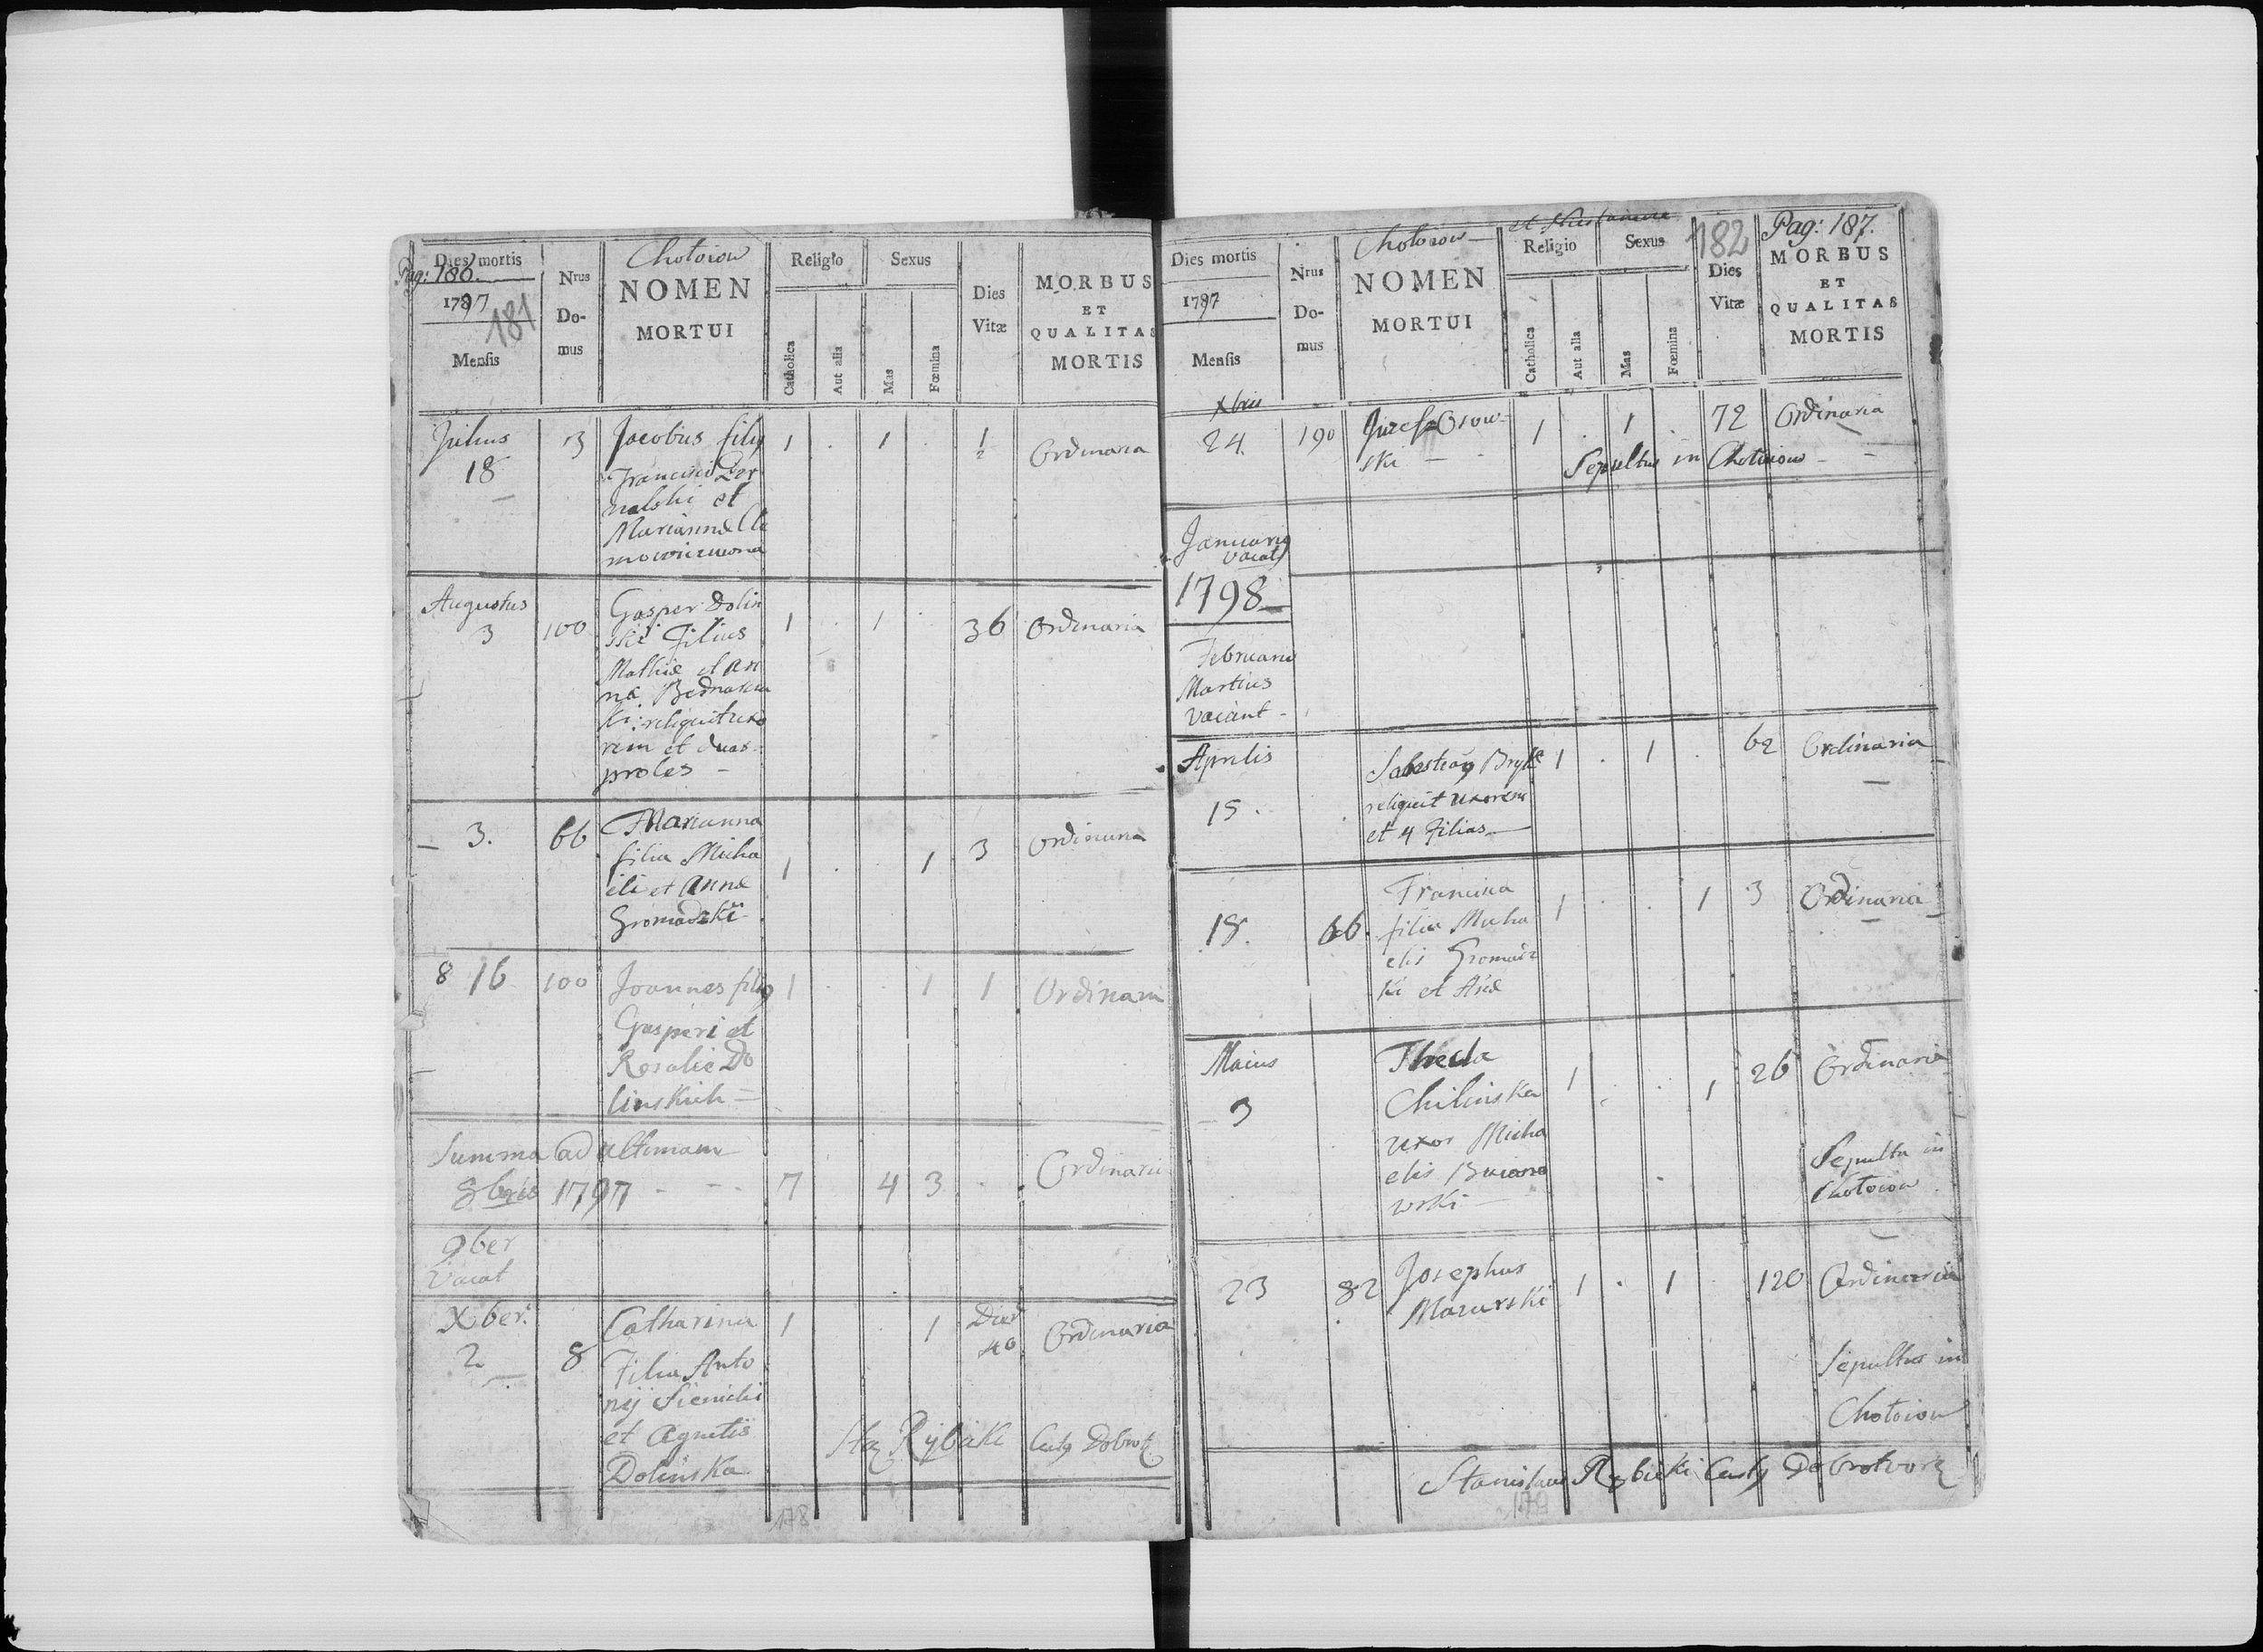 Pag: 186.
Chotoiow
Dies mortis
1797
181
Mensis
Nrus
Do-
mus
NOMEN
MORTUI
Religio
Catholica
Aut alia
Sexus
Mas
Fœmina
Dies
Vitæ
MORBUS
ET
QUALITAS
MORTIS
Julius
18
3
Jacobus filiy
Francisci
nalski et
Mariannæ
1 . 1 .
1/2
Ordinaria
Augustus
3
100
Gasper Dolin
ski Filius
Mathiæ et An
na
reliquit uxo
rem et duas
proles -
1 . 1 . 36 Ordinaria
3.
66
Marianna
filia Micha
eli et Annæ
Gromadzki
1 . 1 3 Ordinaria
8 16
100
Joannes filiy
Gasperi et
Rosalie Do
linskich
1 . . 1 1 Ordinari
Summa ad ultimam
8bris 1797 - - - 7 4 3 . Ordinaria
9ber
Vacat
Xber:
2
8
Catharina
Filia Anto
nij Sienicki
et Agnetis
Dolinska
1 . 1
Dier
40
Ordinaria
Rybicki
178
Pag: 187.
Chotoiow
182
Dies mortis
1797
Mensis
Nrus
Do-
mus
NOMEN
MORTUI
Religio
Catholica
Aut alia
Sexus
Mas
Fœmina
Dies
Vitæ
MORBUS
ET
QUALITAS
MORTIS
Xbris
24.
190
ski -
1 . 1 . 72 Ordinaria
Sepultus in Chotoiow
January
vacat
1798
Februarius
Martius
vacant -
Aprilis
15.
reliquit uxorem
et 4 Filias
1 . 1 . 62 Ordinaria
18.
66.
Francisca
filia Micha
elis Gromadz
ki et
1 . . 1 3 Ordinaria
Maius
3
Thecla
Chilinska
uxor Micha
elis
wski -
1 . . 1 26 Ordinaria
Sepulta in
Chotoiow
23
82
Josephus
Mazurski
1 . 1 . 120 Ordinaria
Sepultus in
Chotoiow
Stanislaus Rybicki
179